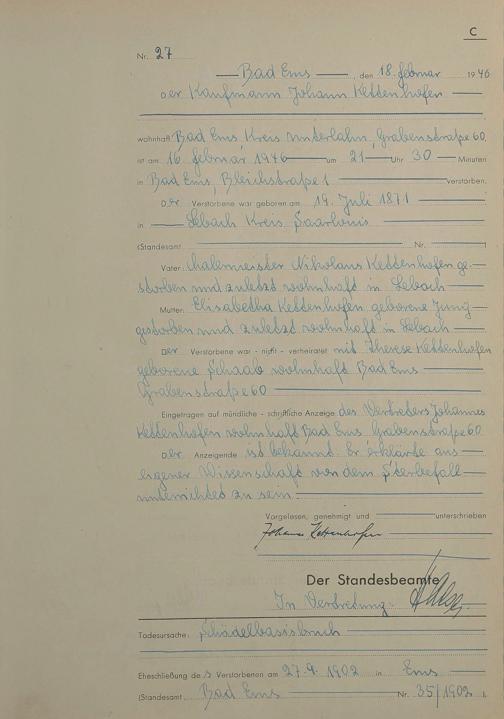 C
Nr. 27
Bad Ems, den 18. Februar 1946
Der Kaufmann Johann Kettenhofen
wohnhaft Bad Ems, Kreis Unterlahn, Grabenstraße 60,
ist am 16. Februar 1946 um 21 Uhr 30 Minuten
in Bad Ems, Bleichstraße 1 verstorben.
Der Verstorbene war geboren am 19. Juli 1871
in Lebach Kreis Saarlouis
(Standesamt Nr. )
Vater: Malermeister Nikolaus Kettenhofen ge-
storben und zuletzt wohnhaft in Lebach
Mutter: Elisabetha Kettenhofen geborene Jung
gestorben und zuletzt wohnhaft in Lebach
Der Verstorbene war - nicht - verheiratet mit Therese Kettenhofen
geborene Schaab wohnhaft Bad Ems
Grabenstraße 60
Eingetragen auf mündliche - schriftliche Anzeige des Vertreters Johannes
Kettenhofen wohnhaft Bad Ems Grabenstraße 60
Der Anzeigende ist bekannt. Er erklärte aus
eigener Wissenschaft von dem Sterbefall
unterrichtet zu sein.
Vorgelesen, genehmigt und unterschrieben
Johannes Kettenhofen
Der Standesbeamte
In Vertretung:
Todesursache: Schädelbasisbruch
Eheschließung des Verstorbenen am 27.9.1902 in Ems
(Standesamt Bad Ems Nr. 35/1902 ).